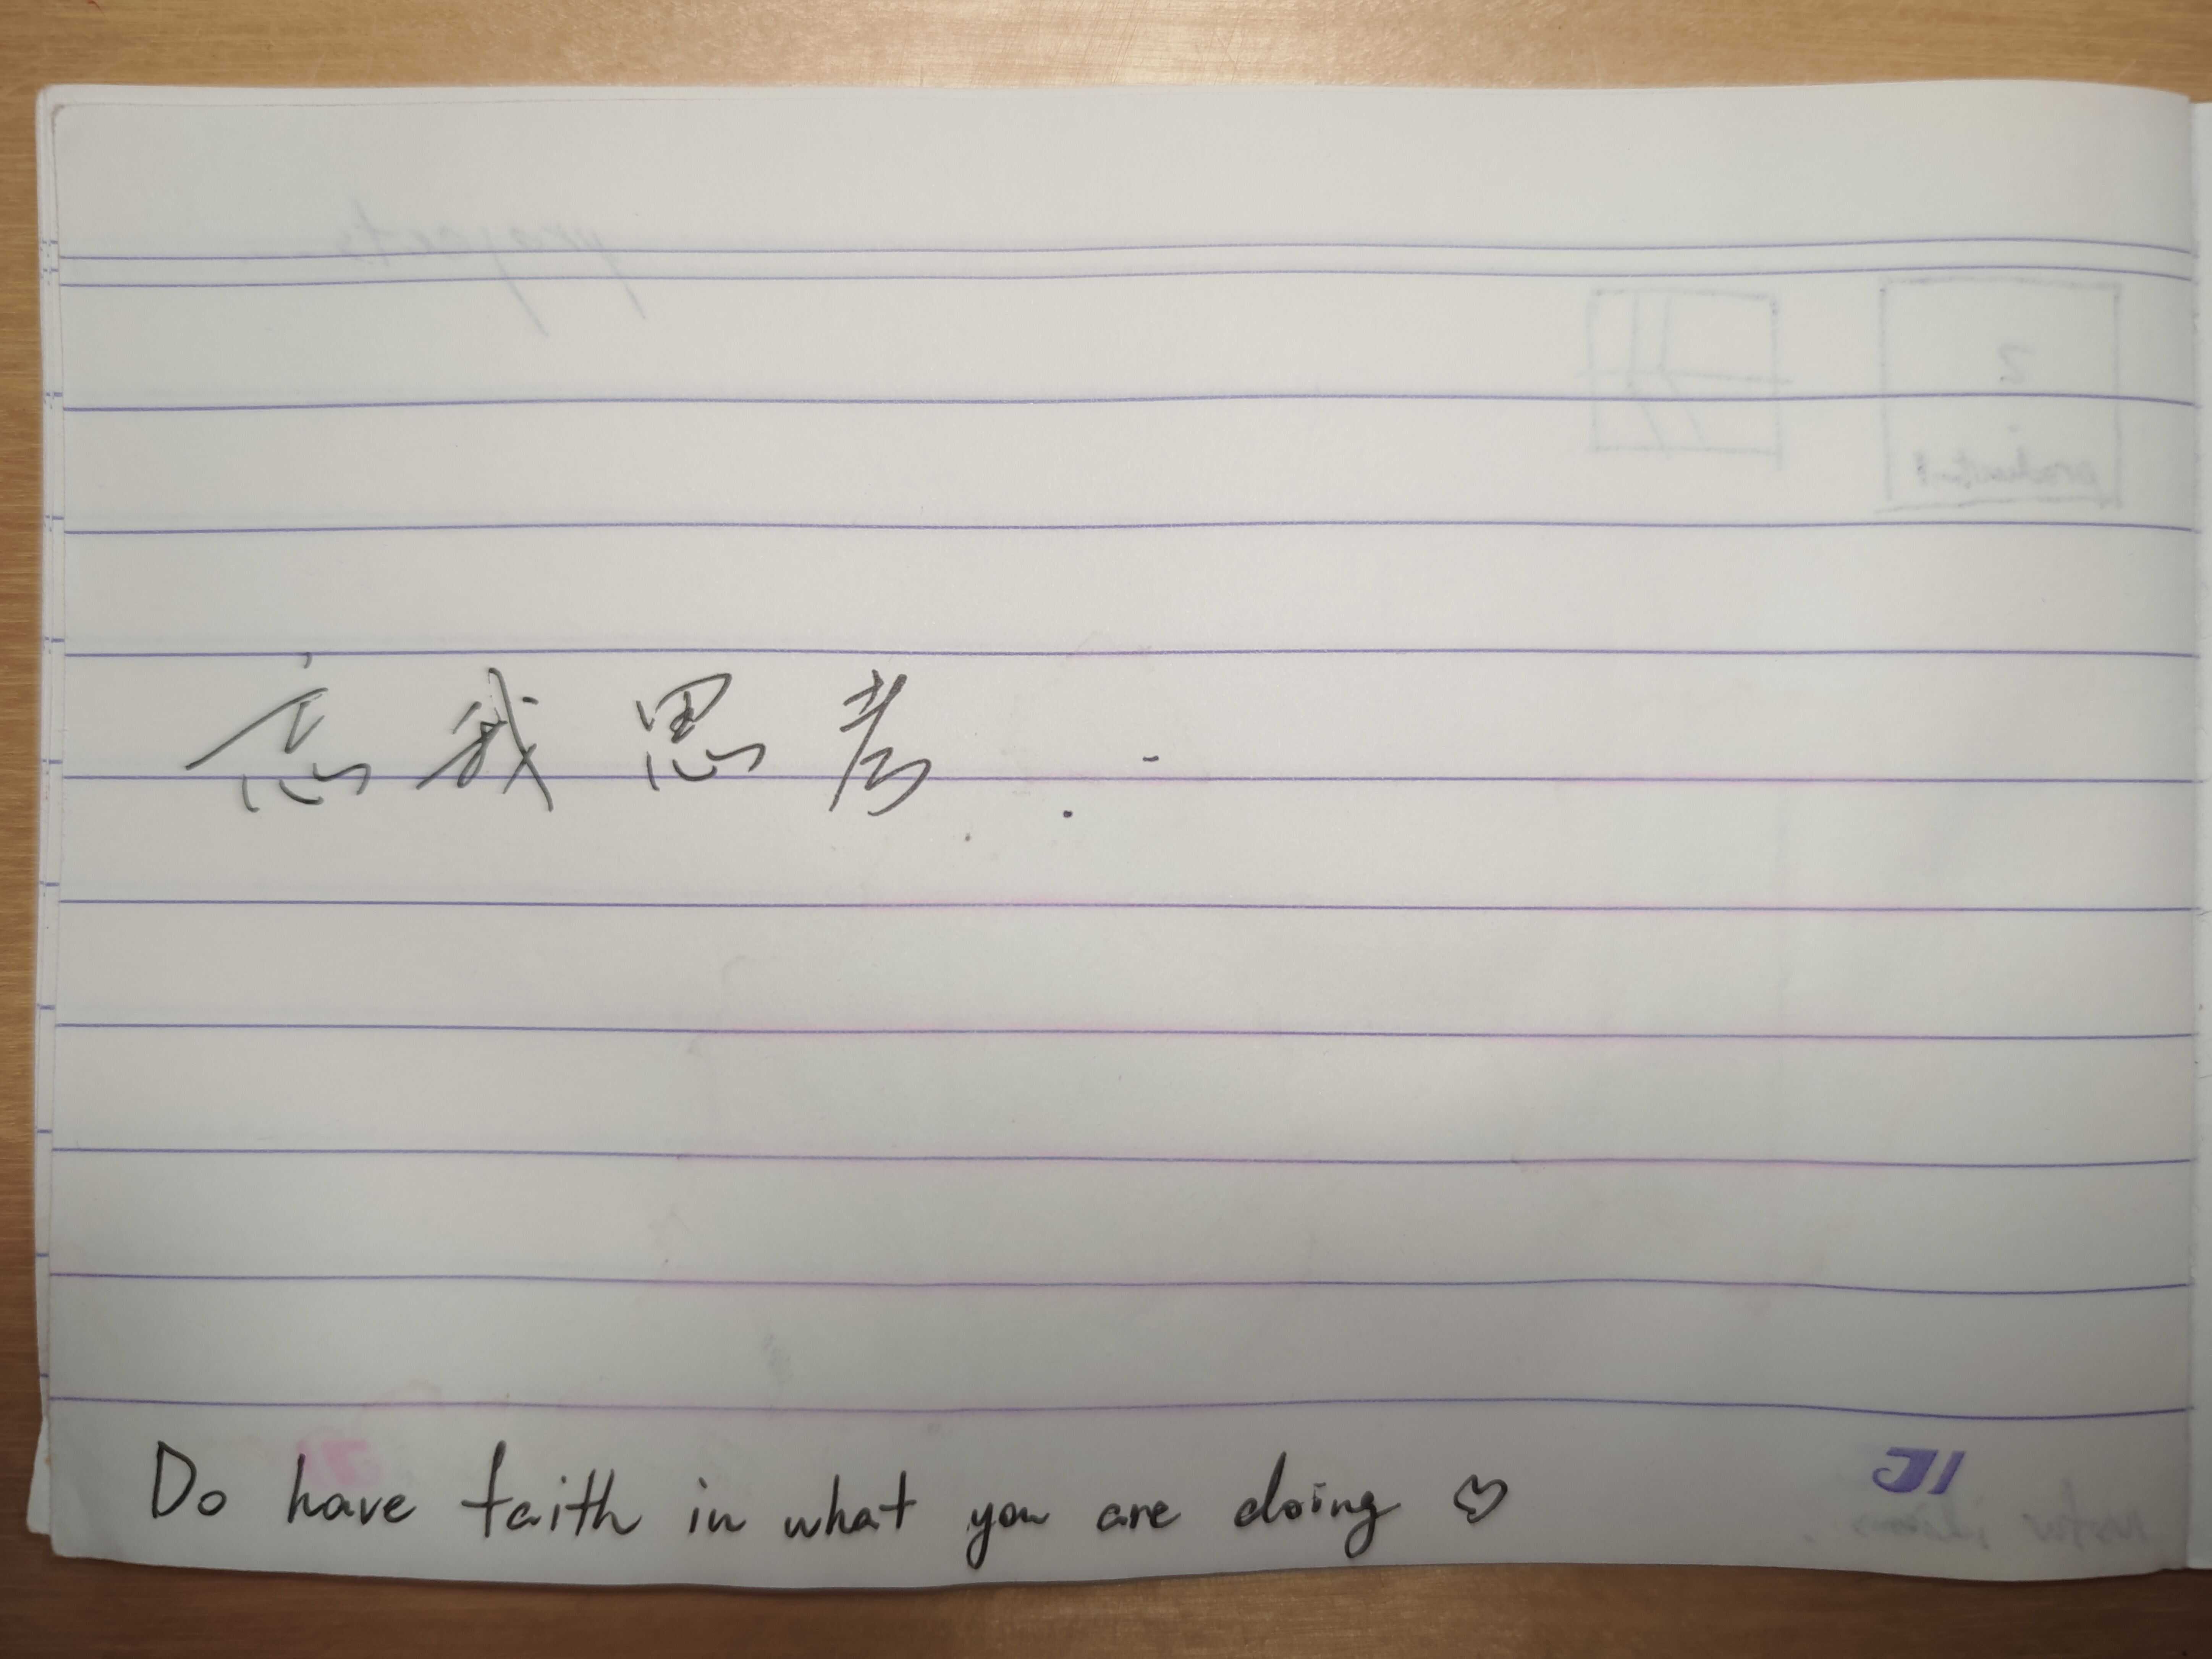 忘我思考...
Do have faith in what you are doing ♡